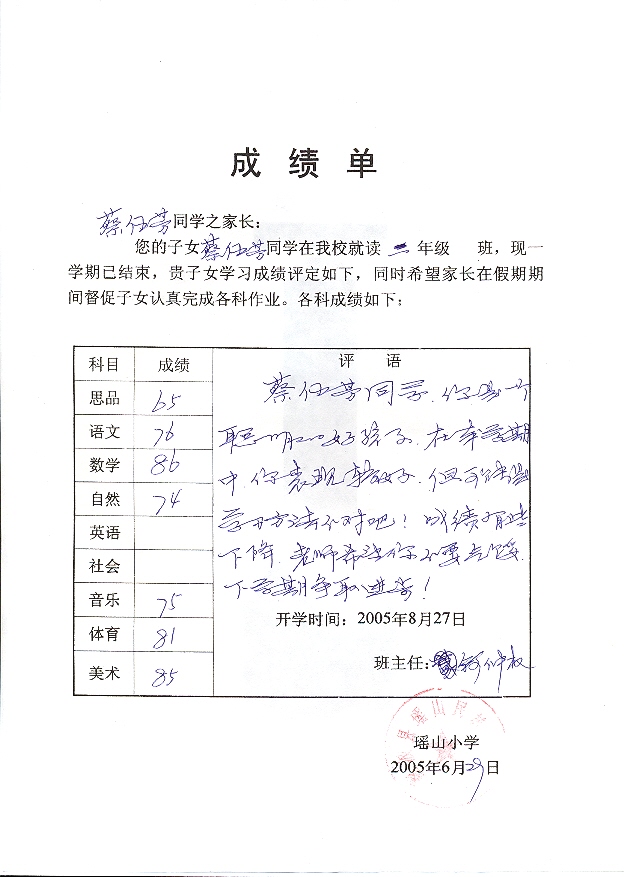 成绩单
蔡伍芳同学之家长：
您的子女蔡伍芳同学在我校就读 二 年级 班，现一
学期已结束，贵子女学习成绩评定如下，同时希望家长在假期期
间督促子女认真完成各科作业。各科成绩如下：
科目 成绩 评 语
思品 65
语文 76
数学 86
自然 74
英语
社会
音乐 75
体育 81
美术 85
蔡伍芳同学，你是一个
聪明的好孩子。在本学期
中，你表现较好，但可能是
学习方法不对吧！成绩有些
下降，老师希望你不要气馁，
下学期争取进步！
开学时间：2005年8月27日
班主任：
瑶山小学
2005年6月29日